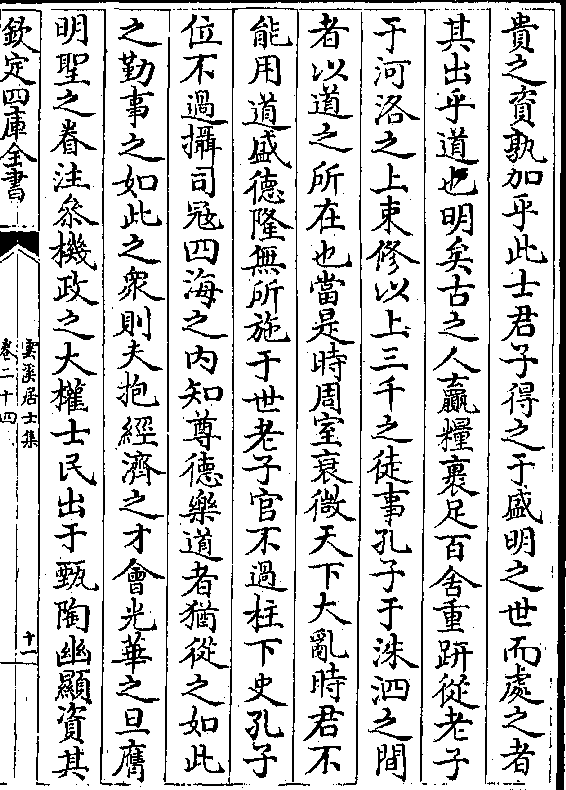 貴之資孰加乎此士君子得之于盛明之世而處之者
其出乎道也明矣古之人贏糧裹足百舍重趼從老子
于河洛之上束修以上三千之徒事孔子于洙泗之間
者以道之所在也當是時周室衰微天下大亂時君不
能用道盛德隆無所施于世老子官不過柱下史孔子
位不過攝司冦四海之内知尊德樂道者猶從之如此
之勤事之如此之衆則夫抱經濟之才會光華之旦膺
明聖之眷注叅機政之大權士民出于甄陶幽顯資其
欽定四庫全書
雲溪居士集
卷二十四
十一